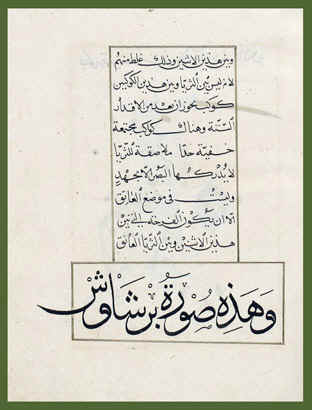 وبين هذين الاثنين وذلك غلط منهم
لانه ليس بين الثريا وبين هذين الكوكبين
كوكب يجوز ان يعد من الاقدار
الستة وهناك كواكب مجتمعة
خفية جدا ملاصقة للثريا
لا يدركها البصر الا بجهد
وليست فى موضع العاتق
الا ان يكون الفرجة بين
هذين الاثنين وبين الثريا العاتق
وَهَذِهِ صُورَةُ بَرْشَاوُشْ